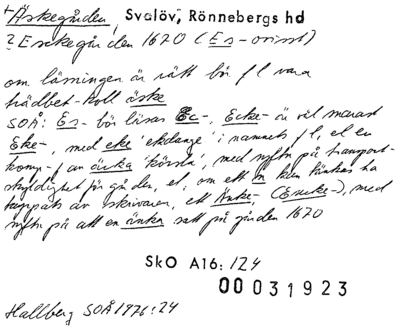 +Äskegården, Svalöv, Rönnebergs hd
? Esekegården 1670 (Es- ovisst)
om läsningen är rätt bör f l vara
trädbet-koll äske
SOÅ: Es- bör läsas Ec-, Ecke- är väl snarast
Eke-, med eke 'ekdunge' i namnets f l, el en
komp-f av äcka 'körsla', med syftn på transport-
skyldighet för gården, el, om ett n kan tänkas ha
tappats av skrivaren, ett Änke- (Encke-), med
syftn på att en änka satt på gården 1670
SkO A16:124
00031923
Hallberg SOÅ 1976:24